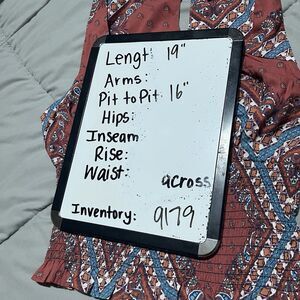 Lengt: 19"
Arms:
Pit to Pit 16"
Hips:
Inseam
Rise:
Waist:
across
Inventory: 9179